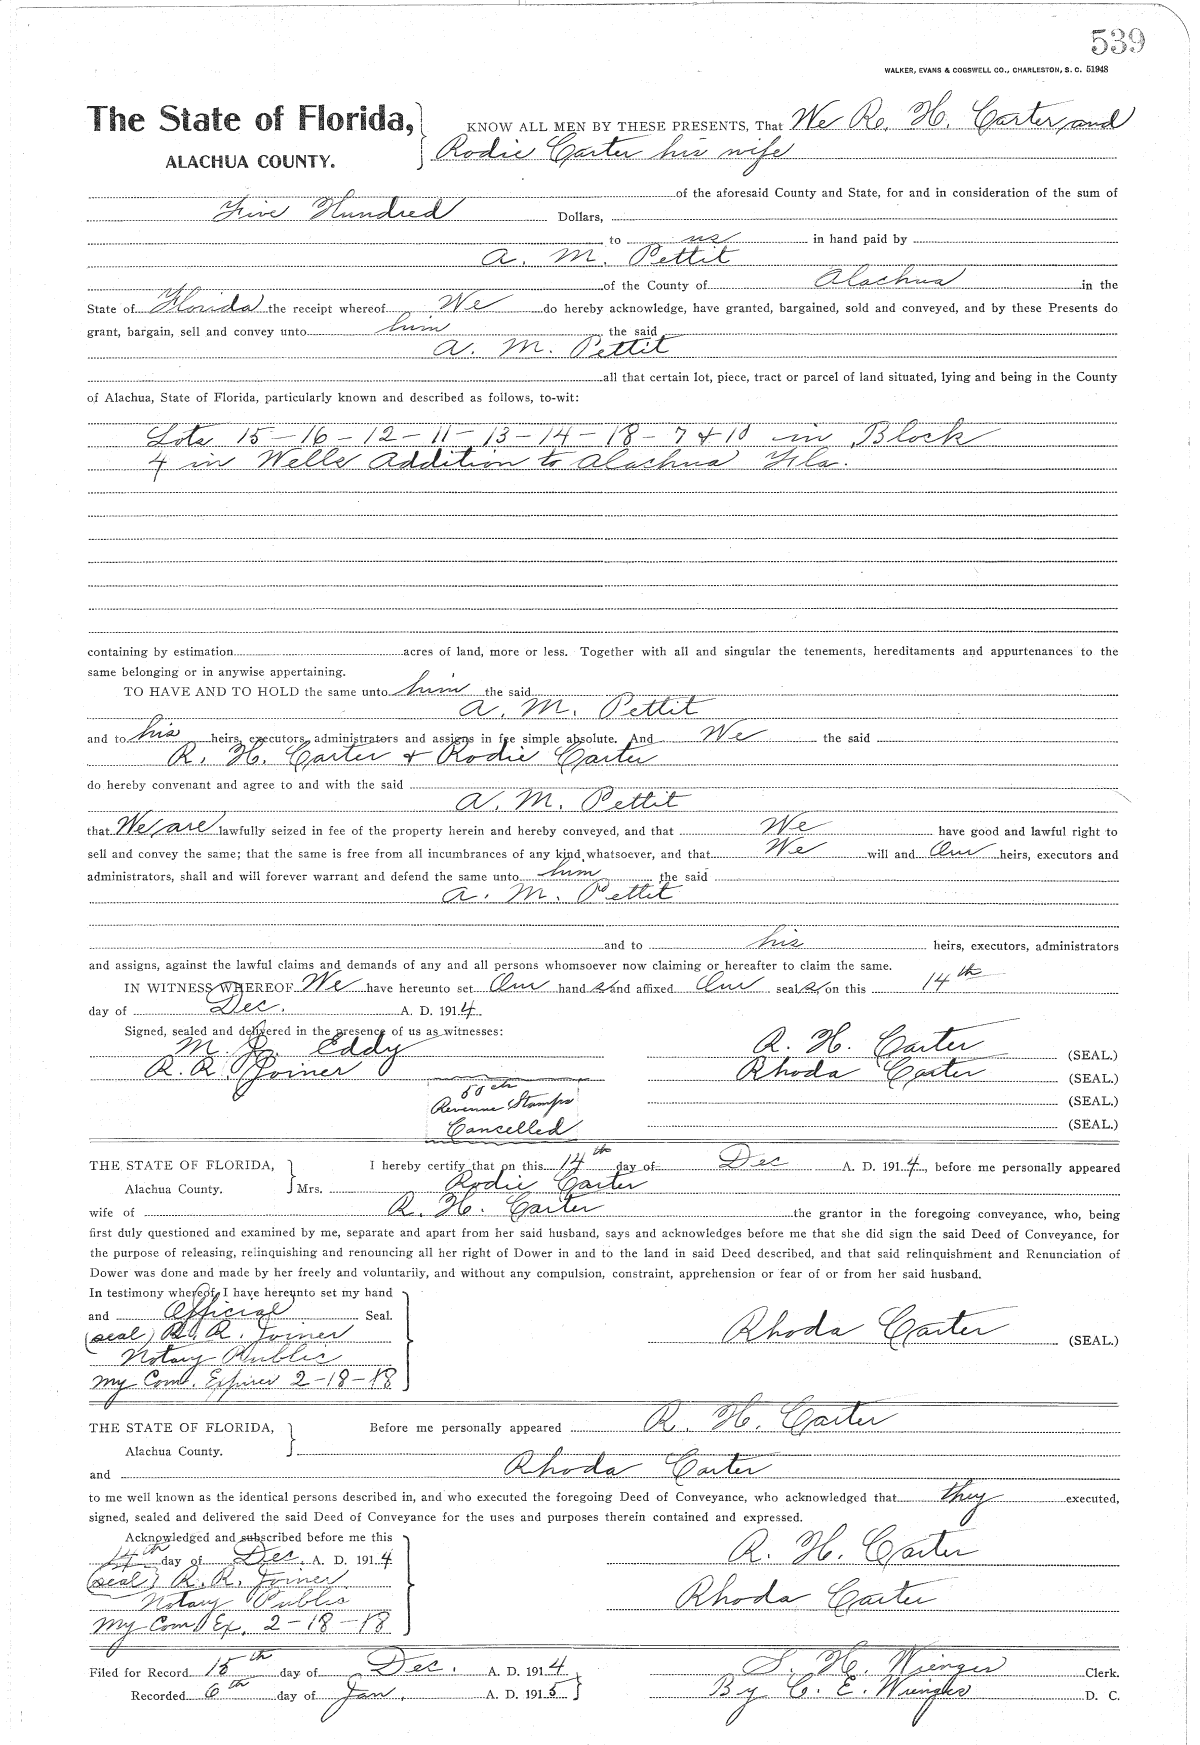 539
WALKER, EVANS & COGSWELL CO., CHARLESTON, S. C. 51948
The State of Florida,
ALACHUA COUNTY.
KNOW ALL MEN BY THESE PRESENTS, That We R. H. Carter and
Rodie Carter his wife
of the aforesaid County and State, for and in consideration of the sum of
Five Hundred Dollars,
to us in hand paid by
A. M. Pettit
of the County of Alachua in the
State of Florida the receipt whereof We do hereby acknowledge, have granted, bargained, sold and conveyed, and by these Presents do
grant, bargain, sell and convey unto him the said
A. M. Pettit
all that certain lot, piece, tract or parcel of land situated, lying and being in the County
of Alachua, State of Florida, particularly known and described as follows, to-wit:
Lots 15-16-12-11-13-14-18-7 & 10 in Block
4 in Wells Addition to Alachua Fla.
containing by estimation acres of land, more or less. Together with all and singular the tenements, hereditaments and appurtenances to the
same belonging or in anywise appertaining.
TO HAVE AND TO HOLD the same unto him the said
A. M. Pettit
and to his heirs, executors, administrators and assigns in fee simple absolute. And We the said
R. H. Carter & Rodie Carter
do hereby convenant and agree to and with the said
A. M. Pettit
that We are lawfully seized in fee of the property herein and hereby conveyed, and that We have good and lawful right to
sell and convey the same; that the same is free from all incumbrances of any kind whatsoever, and that We will and Our heirs, executors and
administrators, shall and will forever warrant and defend the same unto him the said
A. M. Pettit
and to his heirs, executors, administrators
and assigns, against the lawful claims and demands of any and all persons whomsoever now claiming or hereafter to claim the same.
IN WITNESS WHEREOF We have hereunto set Our hands and affixed Our seals on this 14th
day of Dec. A. D. 1914.
Signed, sealed and delivered in the presence of us as witnesses:
M. Eddy
R. R. Joiner
R. H. Carter (SEAL.)
Rhoda Carter (SEAL.)
(SEAL.)
(SEAL.)
Revenue Stamps
Cancelled
THE STATE OF FLORIDA,
Alachua County.
I hereby certify that on this 14th day of Dec A. D. 1914, before me personally appeared
Mrs. Rodie Carter
wife of R. H. Carter the grantor in the foregoing conveyance, who, being
first duly questioned and examined by me, separate and apart from her said husband, says and acknowledges before me that she did sign the said Deed of Conveyance, for
the purpose of releasing, relinquishing and renouncing all her right of Dower in and to the land in said Deed described, and that said relinquishment and Renunciation of
Dower was done and made by her freely and voluntarily, and without any compulsion, constraint, apprehension or fear of or from her said husband.
In testimony whereof, I have hereunto set my hand
and Official Seal.
(seal) R. R. Joiner
Notary Public
My Com. Expires 2-18-18
Rhoda Carter (SEAL.)
THE STATE OF FLORIDA,
Alachua County.
Before me personally appeared R. H. Carter
and Rhoda Carter
to me well known as the identical persons described in, and who executed the foregoing Deed of Conveyance, who acknowledged that they executed,
signed, sealed and delivered the said Deed of Conveyance for the uses and purposes therein contained and expressed.
Acknowledged and subscribed before me this
14th day of Dec. A. D. 1914
(seal) R. R. Joiner
Notary Public
My Com Ex. 2-18-18
R. H. Carter
Rhoda Carter
Filed for Record 15th day of Dec. A. D. 1914
Recorded 6th day of Jan. A. D. 1915
S. H. Wienges Clerk.
By C. E. Wienges D. C.